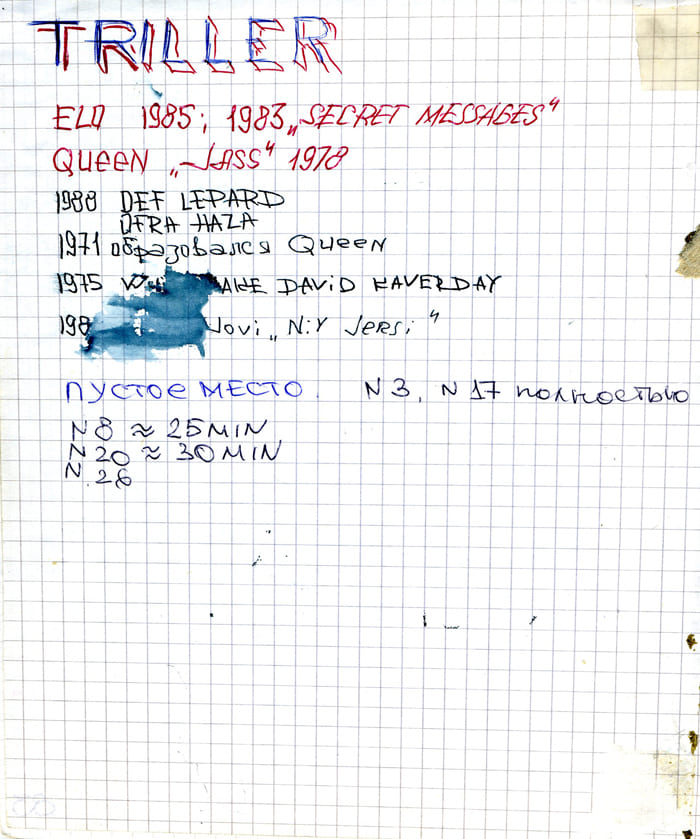 TRILLER
ELO 1985; 1983 „SECRET MESSAGES“
QUEEN „JASS“ 1978
1988 DEF LEPARD
OFRA HAZA
1971 образовался QUEEN
1975 AKE DAVID KAVERDAY
198 Jovi „N:Y JERSi“
ПУСТОЕ МЕСТО. N 3, N 17 полностью
N 8 ≈ 25 MIN
N 20 ≈ 30 MIN
N. 28